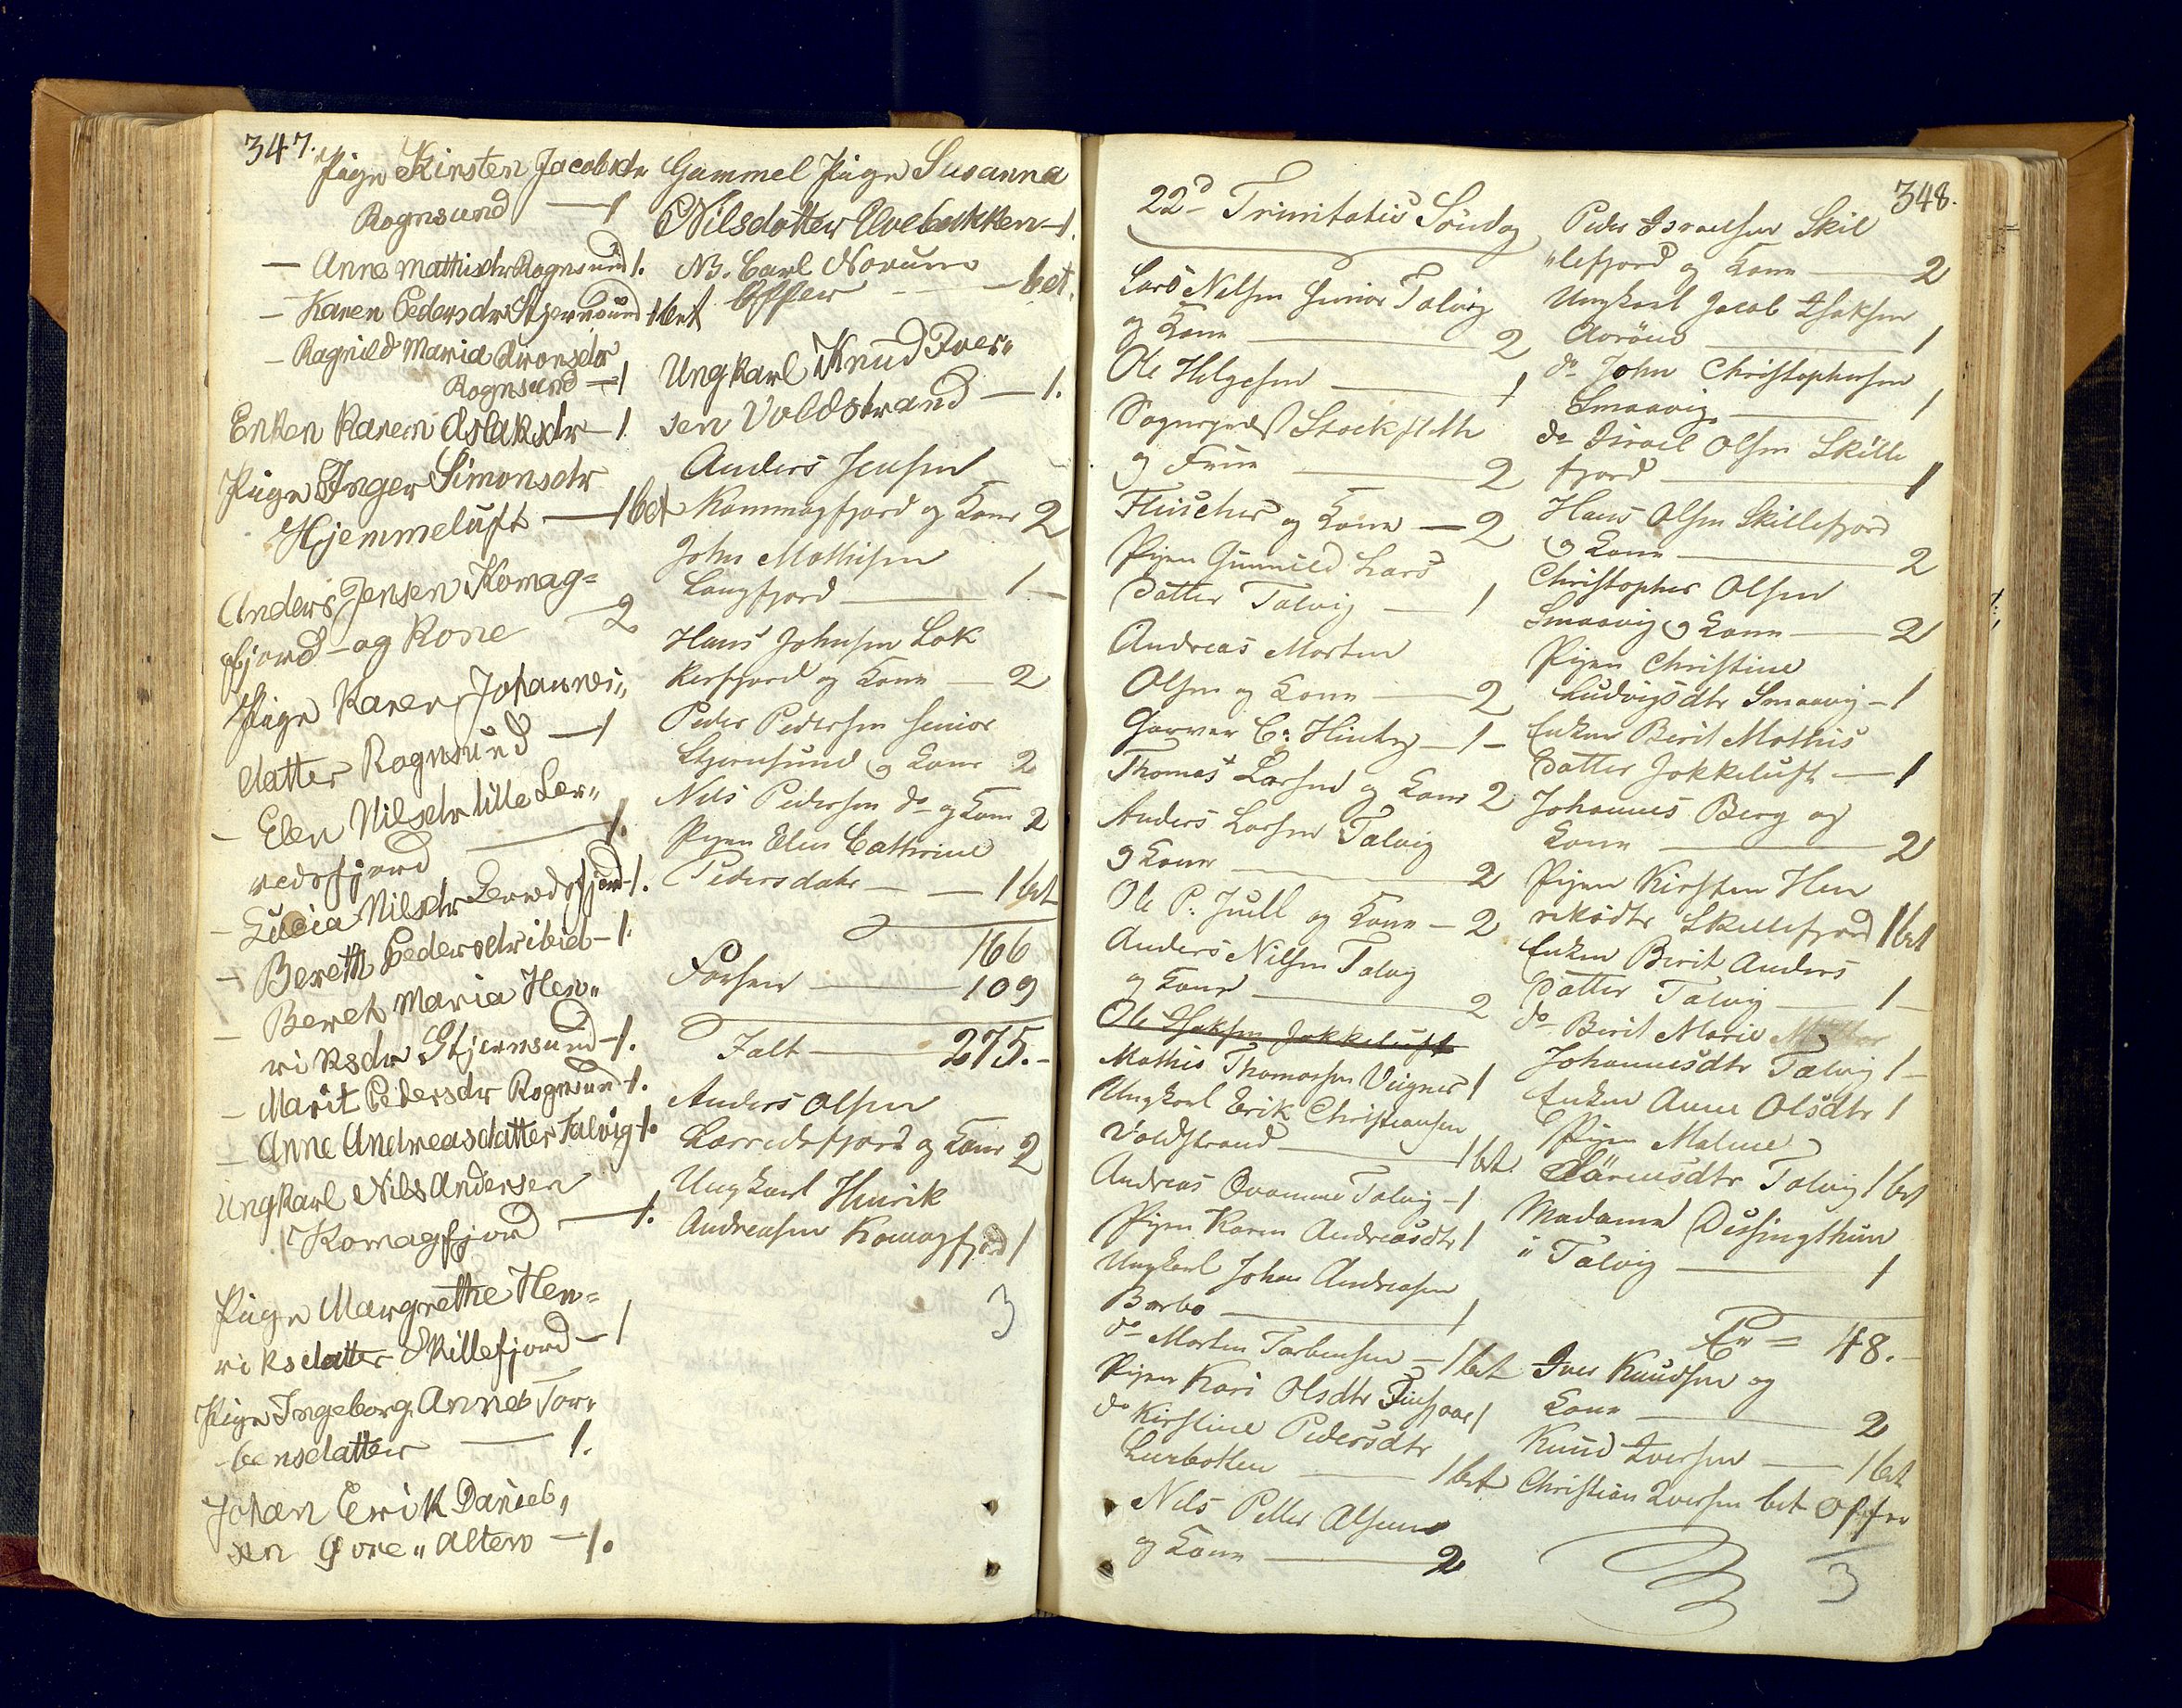 347.
Pige Kirsten Jacobsdr
Rognsund — 1
— Anne Mathisdr Rognsund 1.
— Karen Pedersdr Stjernsund 1 bet
— Ragnild Maria Aronsdr
Rognsund — 1
Enken Karen Aslaksdr — 1
Pige Inger Simonsdr
Hjemmeluft — 1 bet
Anders Jensen Komag=
fjord - og Kone — 2
Pige Karen Johannes„
datter Rognsund — 1
— Elen Nilsdr lille Ler„
redsfjord — 1.
— Lucia Nilsdr Lerredsfjord 1.
— Bereth Pedersdr ibid — 1.
— Beret Maria Hen„
riksdr Stjernsund — 1.
— Marit Pedersdr Rognsund 1.
— Anne Andreasdatter Talvig 1.
Ungkarl Nils Andersen
Komagfjord — 1.
Pige Margrethe Hen=
riksdatter Skillefjord — 1
Pige Ingeborg Anneb Tor„
bensdatter — 1.
Johan Erik Daniels„
sen Øvre „ Alten — 1.
Gammel Pige Susanna
Nilsdotter Elvebakken — 1.
NB. Carl Norum
Offer — bet.
Ungkarl Knud Iver„
sen Voldstrand — 1.
Anders Jensen
Kommagfjord og Kone 2
John Mathisen
Langfjord — 1 —
Hans Johnsen Lok
kerfjord og Kone — 2
Peder Pedersen senior
Stjernsund og Kone 2
Nils Pedersen do og Kone 2
Pigen Elen Cathrine
Pedersdatr — 1 bet
166
Forhen — 109
Ialt — 275. -
Anders Olsen
Lerredsfjord og Kone 2
Ungkarl Henrik
Andreasen Komagfjord 1
3
348.
22d Trinitatis Søndag
Lars Nilsen Junior Talvig
og Kone — 2
Ole Helgesen — 1
Sognepræst Stockfleth
og Frue — 2
Fleischer og Kone — 2
Pigen Gunnild Lars
datter Talvig — 1
Andreas Morten
Olsen og Kone — 2
Garver C: — 1 —
Thomas Larsen og Kone 2
Anders Larsen Talvig
og Kone — 2
Ole P: Juell og Kone — 2
Anders Nilsen Talvig
og Kone — 2
Ole Isaksen Jokkeluft
Mathis Thomasen 1
Ungkarl Erik Christiansen
Voldstrand — 1 bet
Andreas Qvamme Talvig — 1
Pigen Karen Andreasdtr 1
Ungkarl Johan Andreasen
Barbo — 1
do Morten Torbensen — 1 bet
Pigen Kari Olsdtr 1
do Kirstine Pedersdtr
Leerbotten — 1 bet
Nils Peder Olsen
og Kone — 2
Peder Israelsen Skil
„lefjord og Kone — 2
Ungkarl Jacob Isaksen
Aarøen — 1
do John Christophersen
Smaavig — 1
do Israel Olsen Skille
fjord — 1
Hans Olsen Skillefjord
og Kone — 2
Christopher Olsen
Smaavig og Kone — 2
Pigen Christine
Ludvigsdtr Smaavig — 1
Enken Berit Mathis
datter Jokkeluft — 1
Johannes Berg og
Kone — 2
Pigen Kirsten Hen
riksdtr Skillefjord 1 bet
Enken Berit Anders
datter Talvig — 1 —
do Berit Marie
Johannesdtr Talvig 1 —
Enken Anne Olsdtr 1
Pigen Malene
Talvig 1 bet
Madame Dessingthun
i Talvig — 1
= 48. -
Iver Knudsen og
Kone — 2
Knud Iversen — 1 bet
Christian Iversen bet Offer
3